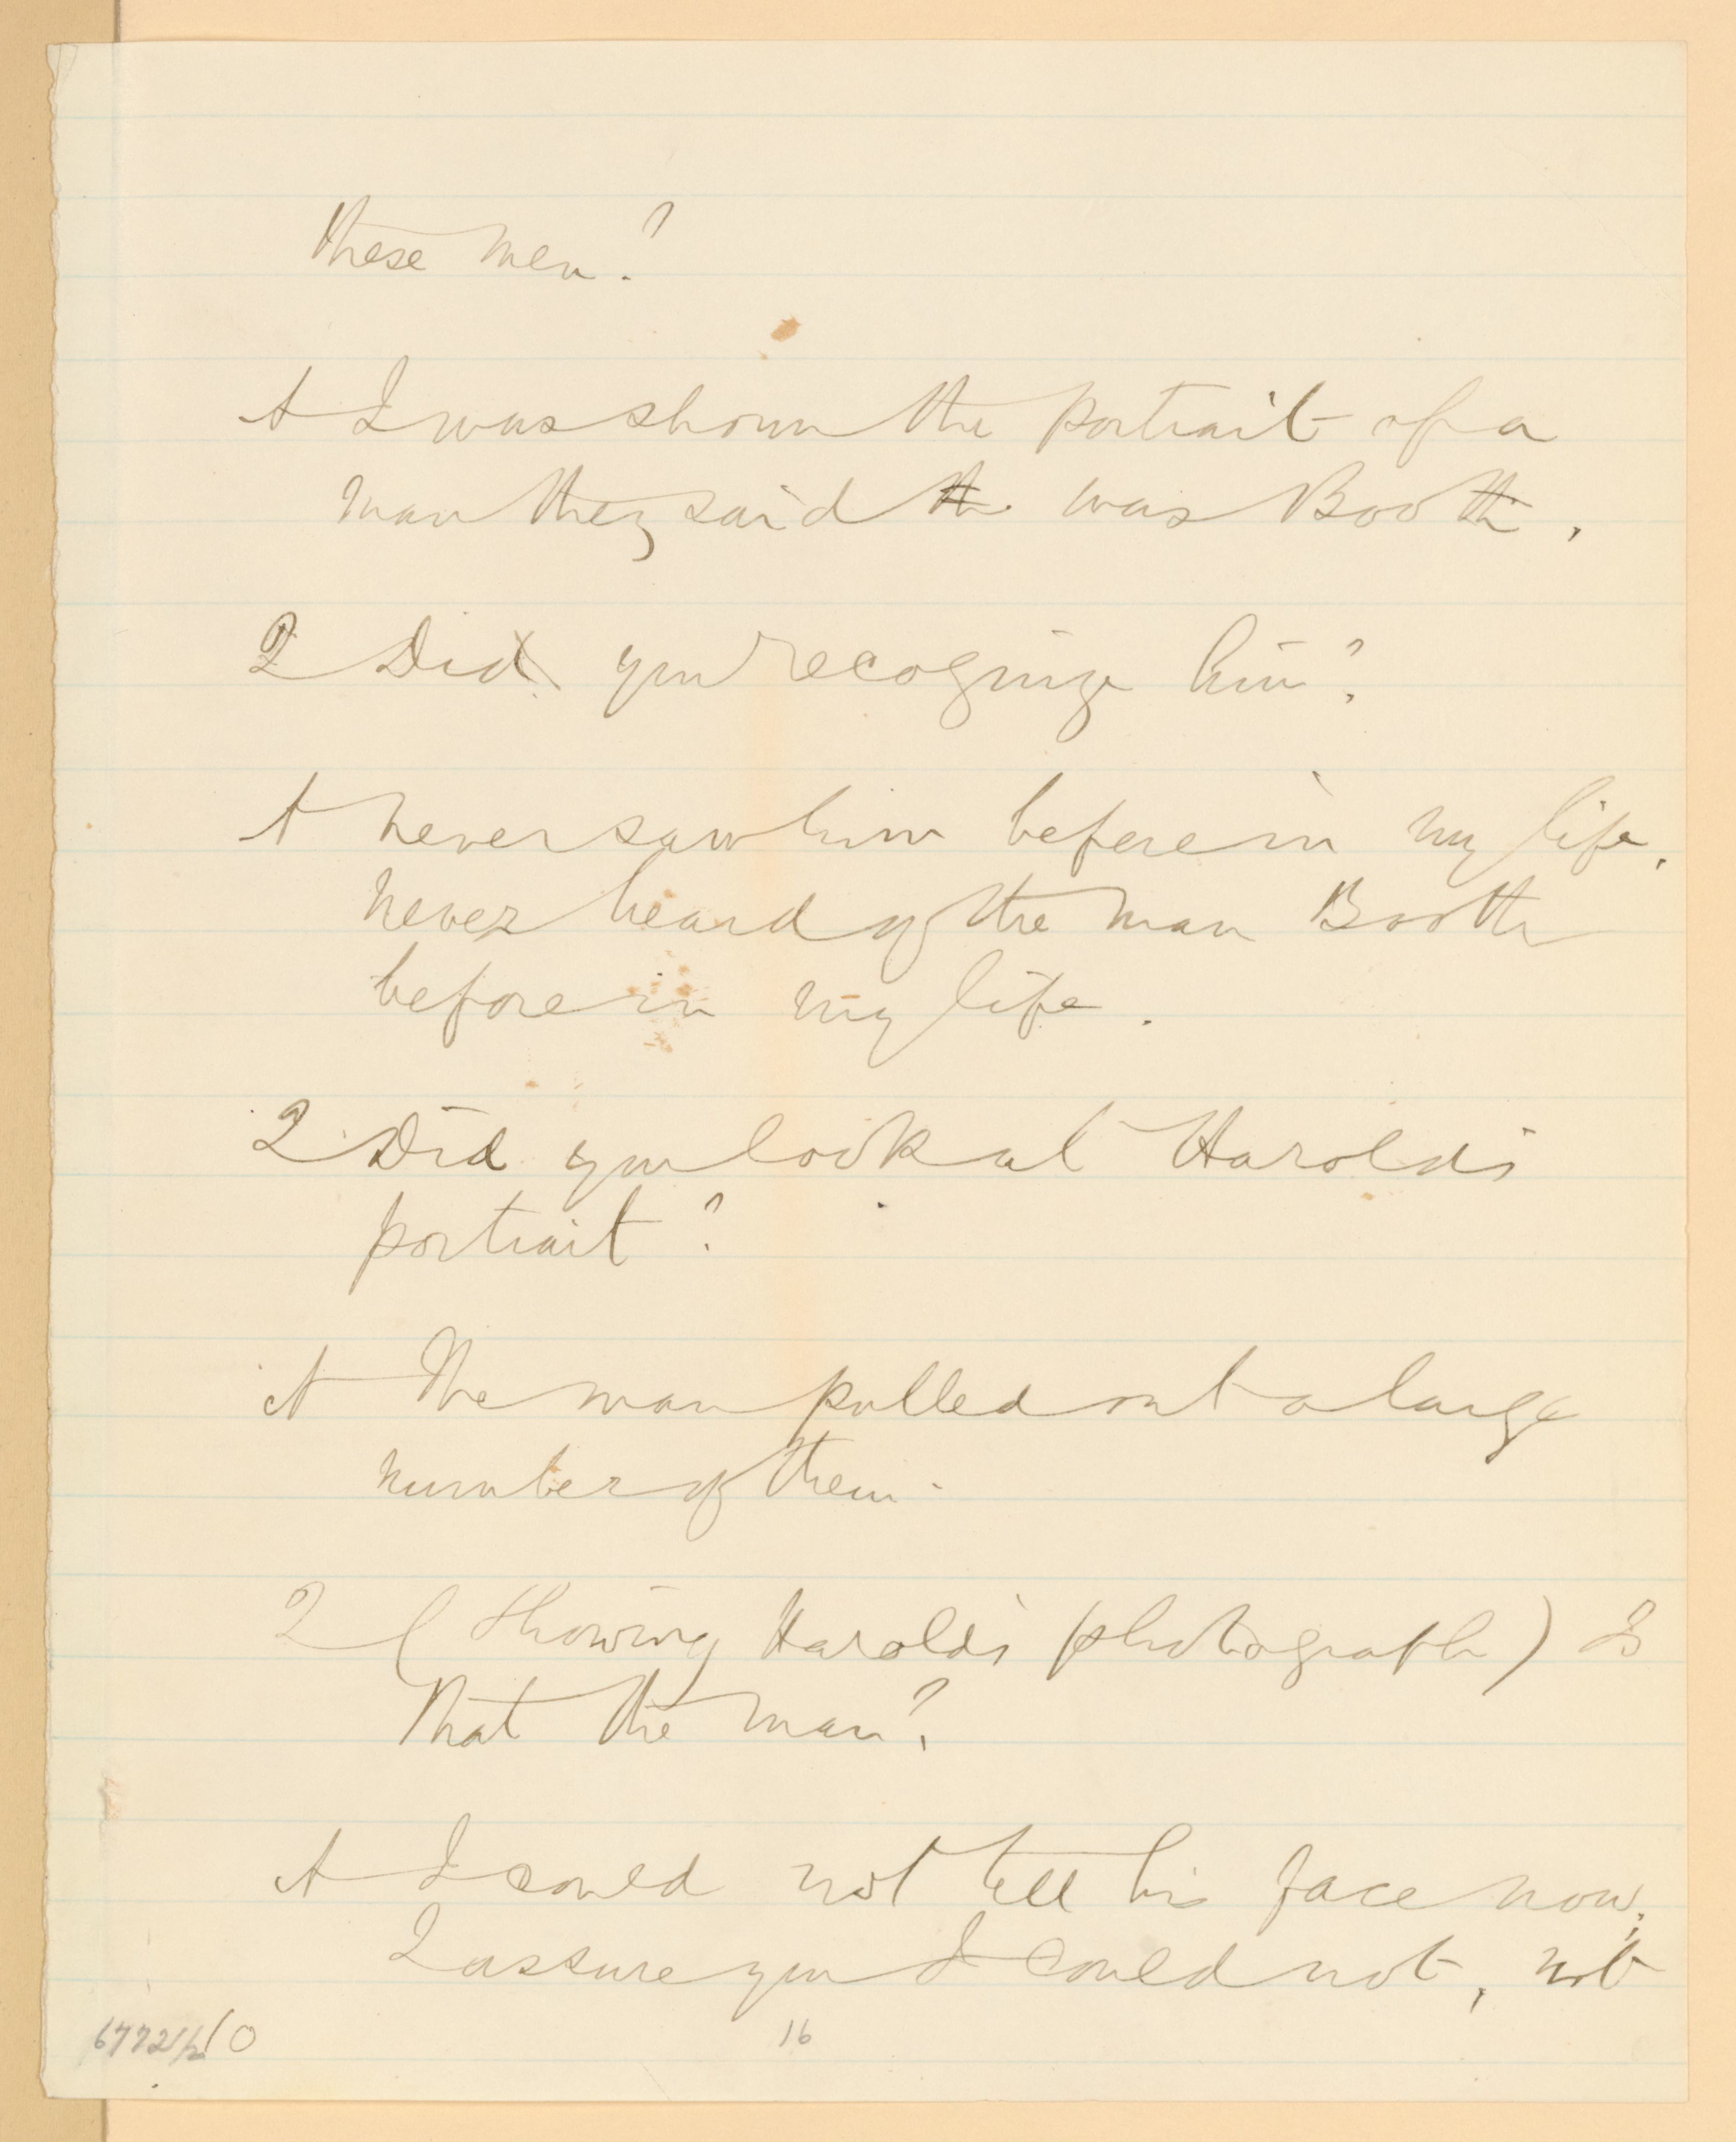 these men?
A I was shown the portrait of a
man they said th was Booth.
Q Did you recognize him?
A Never saw him before in my life.
Never heard of the man Booth
before in my life.
Q Did you look at Harold's
portrait?
A The man pulled out a large
number of them.
Q (Showing Harold's photograph) Is
that the man?
A I could not tell his face now;
I assure you I could not, not
6772 1/2 10
16